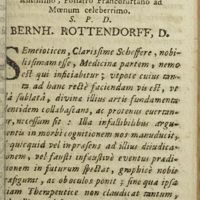 Poliatro Francofurtano ad
Mœnum celeberrimo.
S. P. D.
BERNH. ROTTENDORFF, D.
SEmeioticen, Clarissime Scheffere, nobi-
lissimam esse, Medicinæ partem, nemo
est qui inficiabitur; utpote cujus tan-
ta ad hanc rectè faciendam vis est, ut
sublatâ, divinæ illius artis fundamenta
eridem collabascant, ac protenus everran-
tur, necessum sit: Illa infallibilibus argu-
entis in morbi cognitionem nos manuducit,
quicquid vel in præsens ad illius dijudica-
onem, vel fausti infaustive eventus prædi-
onem in futurum spectat, graphicè nobis
ræfigurat, ac ob oculos ponit; sine quâ ipsa
iam Therapeutice non claudicat tantum,